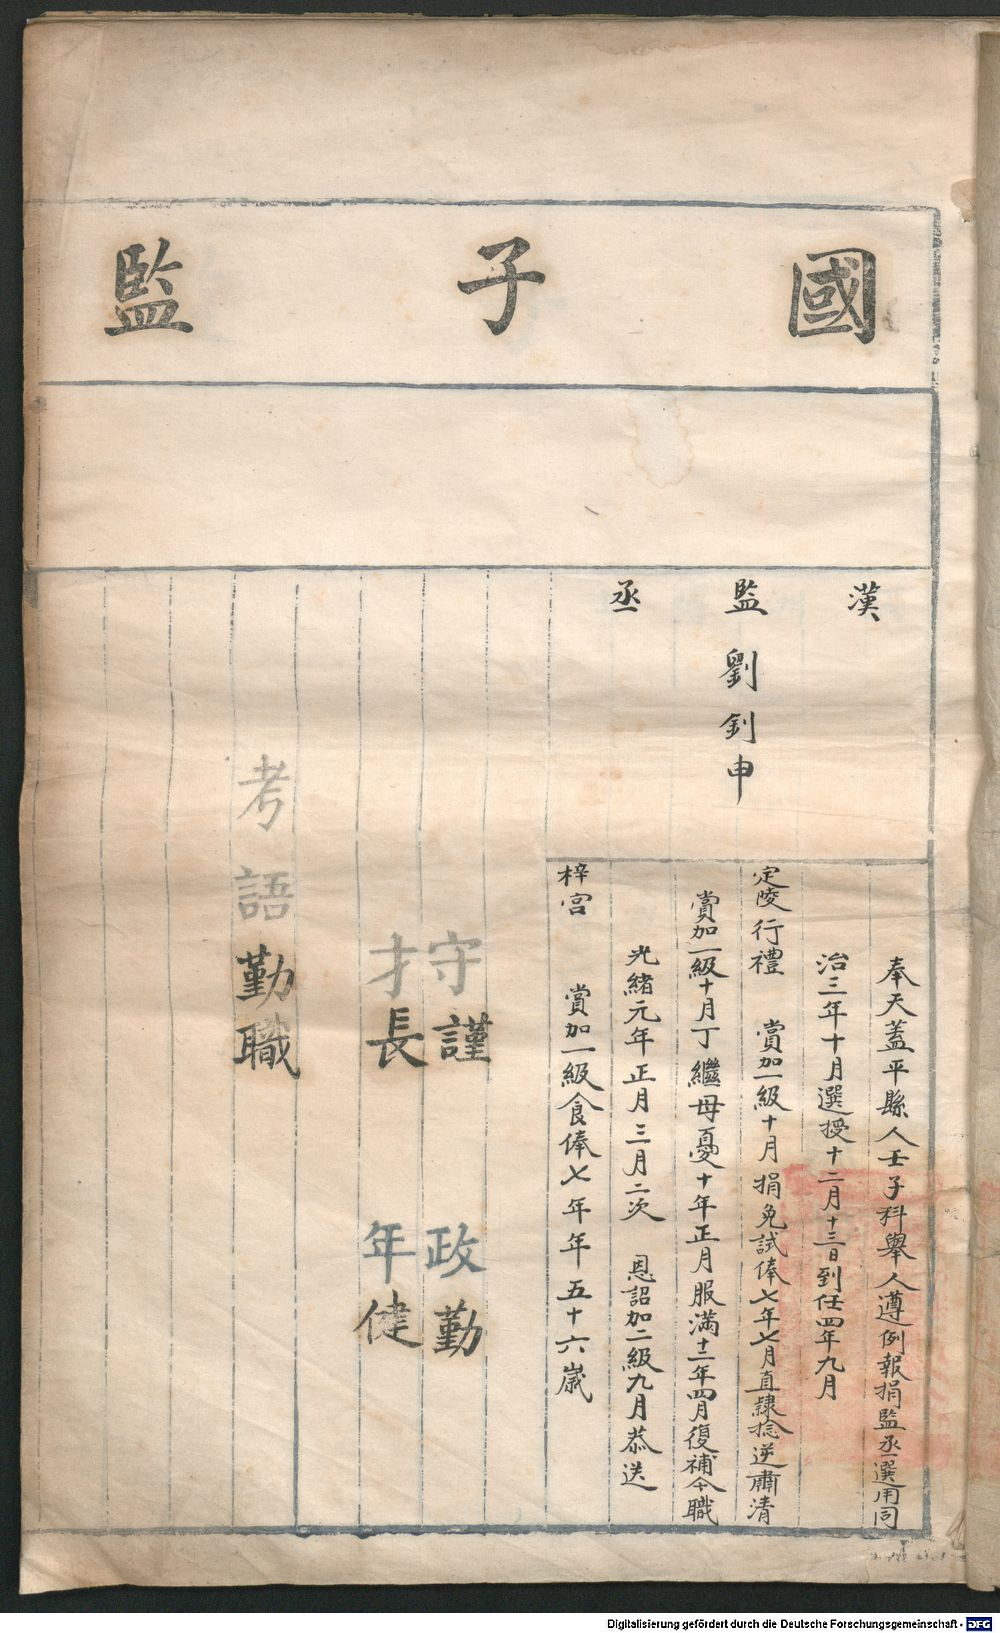 國子監
漢監丞
劉釗申
奉天蓋平縣人壬子科舉人遵例報捐監丞選用同
治三年十月選授十二月十三日到任四年九月
定陵行禮 賞加一級十月捐免試俸七年七月直隷捻逆肅清
賞加一級十月丁繼母憂十年正月服滿十二年四月復補今職
光緒元年正月三月二次 恩詔加二級九月恭送
梓宮 賞加一級食俸七年年五十六歲
守謹 政勤
才長 年健
考語勤職
Digitalisierung gefördert durch die Deutsche Forschungsgemeinschaft - DFG